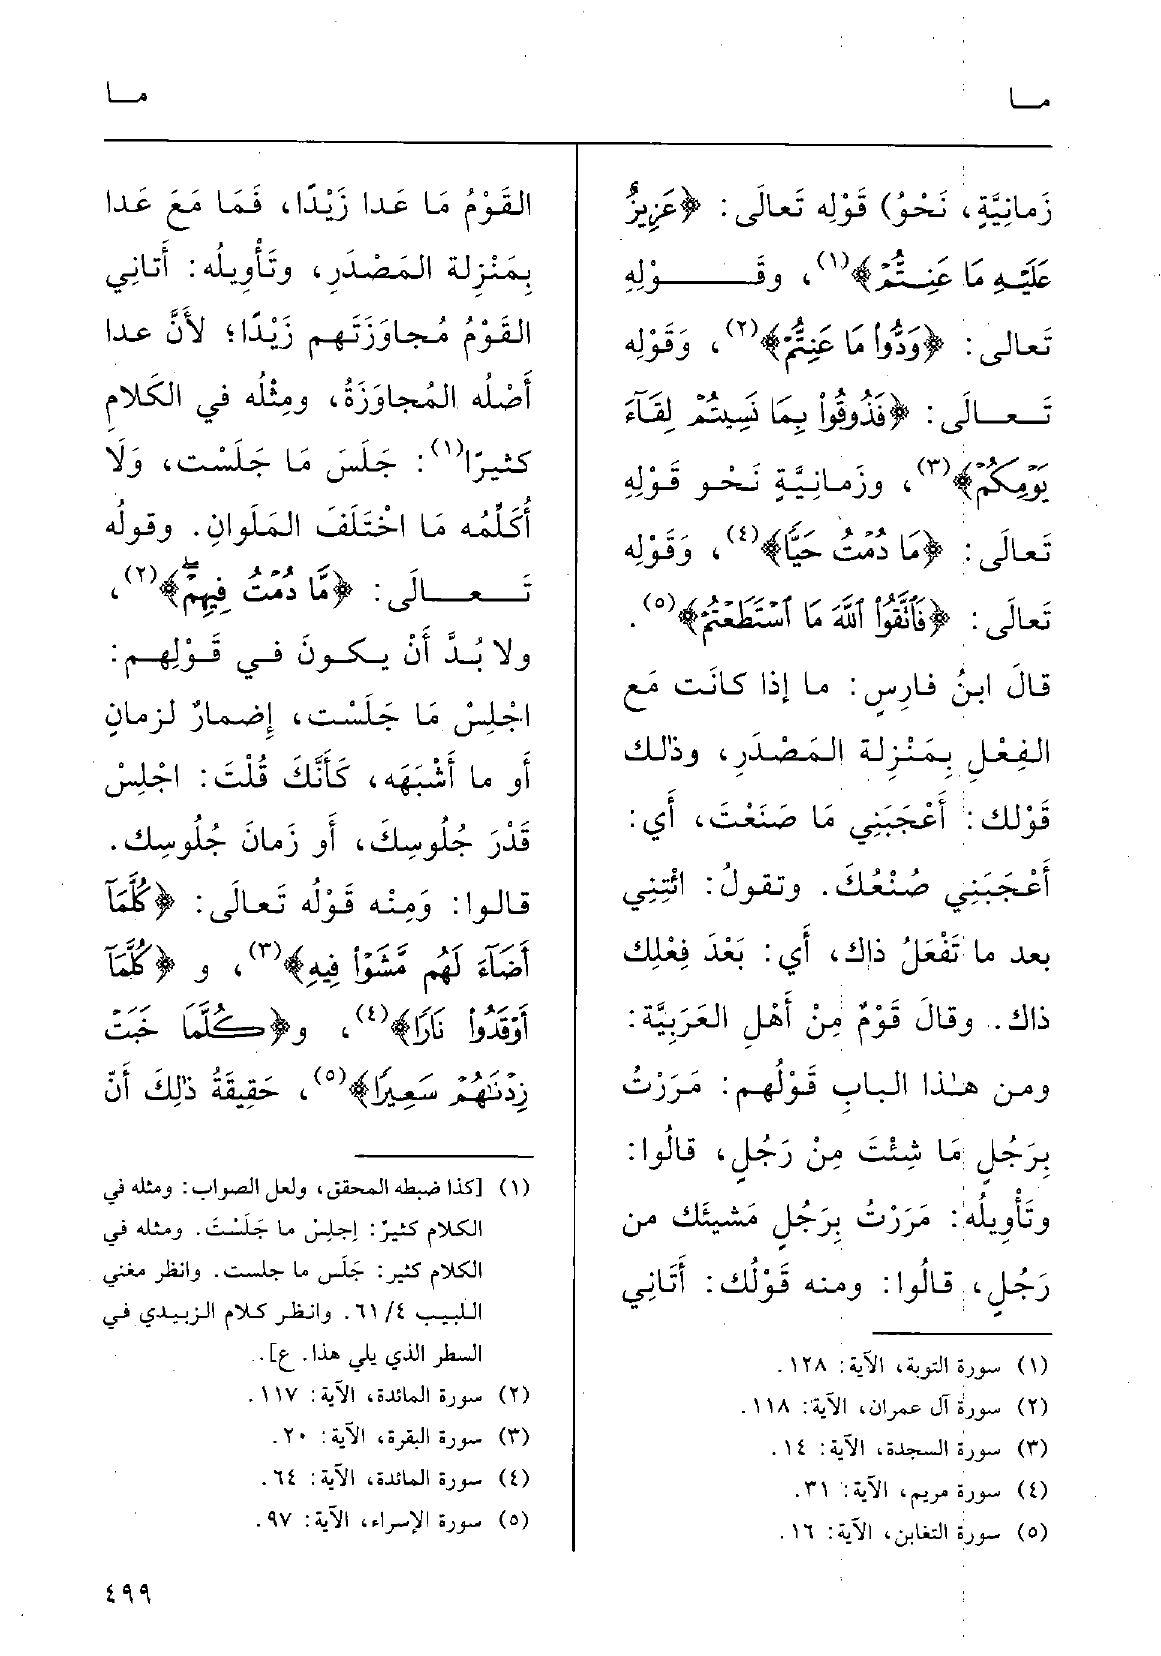 مــا
مــا
زَمانِيَّةٍ، نَحْوُ) قَوْلِه تَعالَى: ﴿عَزِيزٌ
عَلَيْهِ مَا عَنِتُّمْ﴾(١)، وقَــوْلِهِ
تَعالى: ﴿وَدُّوا۟ مَا عَنِتُّمْ﴾(٢)، وَقَوْلِه
تَــعــالَى: ﴿فَذُوقُوا۟ بِمَا نَسِيتُمْ لِقَآءَ
يَوْمِكُمْ﴾(٣)، وزَمــانِيَّةٍ نَحْـو قَوْلِهِ
تَعالَى: ﴿مَا دُمْتُ حَيًّا﴾(٤)، وَقَوْلِه
تَعالَى: ﴿فَٱتَّقُوا۟ ٱللَّهَ مَا ٱسْتَطَعْتُمْ﴾(٥).
قالَ ابنُ فارِسٍ: ما إذا كانَت مَع
الفِعْلِ بِمَنْزِلة المَصْدَرِ، وذٰلك
قَوْلك: أَعْجَبَنِي مَا صَنَعْتَ، أَي:
أَعْجَبَنِي صُنْعُكَ. وتقولُ: ائْتِنِي
بعد ما تَفْعَلُ ذاك، أَي: بَعْدَ فِعْلِك
ذاك. وقالَ قَوْمٌ مِنْ أَهْلِ العَرَبِيَّة:
ومن هٰذا البابِ قَوْلُهم: مَرَرْتُ
بِرَجُلٍ مَا شِئْتَ مِنْ رَجُلٍ، قالُوا:
وتَأْوِيلُه: مَرَرْتُ بِرَجُلٍ مَشيئَك من
رَجُلٍ، قالُوا: ومنه قَوْلُك: أَتَانِي
(١) سورة التوبة، الآية: ١٢٨.
(٢) سورة آل عمران، الآية: ١١٨.
(٣) سورة السجدة، الآية: ١٤.
(٤) سورة مريم، الآية: ٣١.
(٥) سورة التغابن، الآية: ١٦.
القَوْمُ مَا عَدا زَيْدًا، فَمَا مَعَ عَدا
بِمَنْزِلة المَصْدَرِ، وتَأْوِيلُه: أَتانِي
القَوْمُ مُجاوَزَتَهم زَيْدًا؛ لأَنَّ عدا
أَصْلُه المُجاوَزَةُ، ومِثْلُه في الكَلامِ
كثيرًا(١): جَلَسَ مَا جَلَسْت، وَلَا
أُكَلِّمُه مَا اخْتَلَفَ المَلَوانِ. وقولُه
تَــعــالَى: ﴿مَّا دُمْتُ فِيهِمْ ۖ﴾(٢)،
ولا بُدَّ أَنْ يـكـونَ فـي قَـوْلِهـم:
اجْلِسْ مَا جَلَسْت، إِضمارٌ لزمانٍ
أو ما أَشْبَهَه، كَأَنَّكَ قُلْتَ: اجْلِسْ
قَدْرَ جُلُوسِكَ، أو زَمانَ جُلُوسِك.
قالوا: وَمِنْه قَوْلُه تَعالَى: ﴿كُلَّمَآ
أَضَآءَ لَهُم مَّشَوْا۟ فِيهِ﴾(٣)، و ﴿كُلَّمَآ
أَوْقَدُوا۟ نَارًا﴾(٤)، و﴿كُلَّمَا خَبَتْ
زِدْنَٰهُمْ سَعِيرًا﴾(٥)، حَقِيقَةُ ذٰلِكَ أَنّ
(١) [كذا ضبطه المحقق، ولعل الصواب: ومثله في
الكلام كثيرٌ: إجلِسْ ما جَلَسْتَ. ومثله في
الكلام كثير: جَلَس ما جلست. وانظر مغني
اللبيب ٤/ ٦١. وانظر كلام الزبيدي في
السطر الذي يلي هذا. ع].
(٢) سورة المائدة، الآية: ١١٧.
(٣) سورة البقرة، الآية: ٢٠.
(٤) سورة المائدة، الآية: ٦٤.
(٥) سورة الإسراء، الآية: ٩٧.
٤٩٩